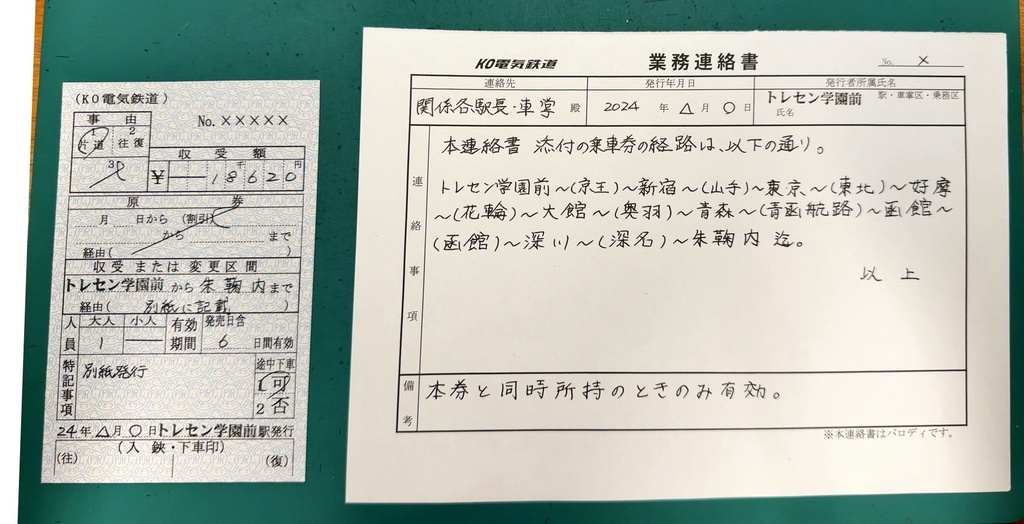 (KO電気鉄道)
事由
No.×××××
1 片道 2 往復
3
収受額
¥ ―18620 千 円
原券
月 日から (割引)
から まで
経由( )
収受または変更区間
トレセン学園前から朱鞠内まで
経由(別紙に記載)
人員 大人 小人 有効期間 発売日含
1 ― 6 日間有効
特記事項 別紙発行 途中下車
1 可
2 否
24年△月〇日トレセン学園前駅発行
(入鋏・下車印)
(往) (復)
KO電気鉄道 業務連絡書 No. ×
連絡先 発行年月日 発行者所属氏名
関係各駅長・車掌 殿 2024 年 △ 月 〇 日 トレセン学園前 駅・車掌区・乗務区
氏名
連絡事項
本連絡書 添付の乗車券の経路は、以下の通り。
トレセン学園前~(京王)~新宿~(山手)~東京~(東北)~好摩
~(花輪)~大館~(奥羽)~青森~(青函航路)~函館~
(函館)~深川~(深名)~朱鞠内 迄。
以上
備考
本券と同時所持のときのみ有効。
※本連絡書はパロディです。